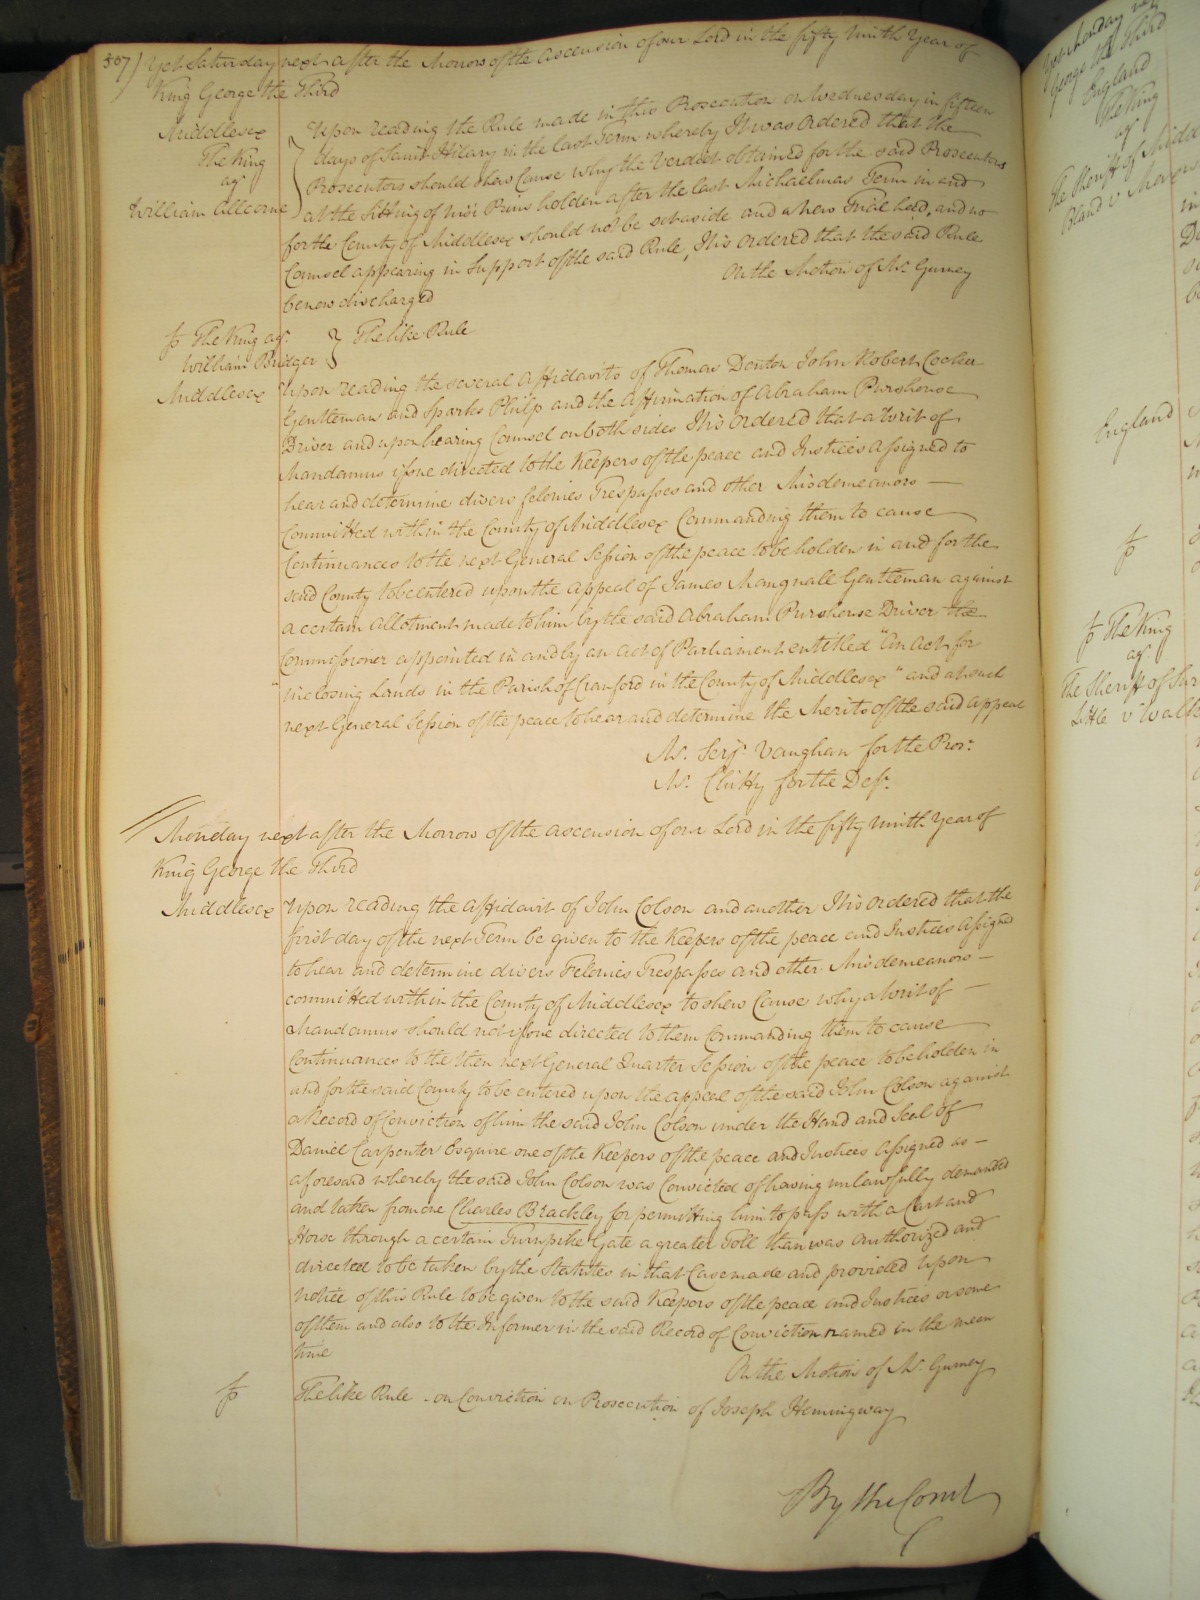 507) Yet Saturday next after the Morrow of the Ascension of our Lord in the fifty ninth Year of
King George the Third
Middlesex
The King
agt
William Allcorne
Upon reading the Rule made in this Prosecution on Wednesday in fifteen
days of Saint Hilary in the last Term whereby It was Ordered that the
Prosecutors should shew Cause why the Verdict obtained for the said Prosecutors
at the Sitting of Nisi Prius holden after the last Michaelmas Term in and
for the County of Middlesex should not be set aside and a New Trial had, and no
Counsel appearing in Support of the said Rule, It is Ordered that the said Rule
be now discharged
On the Motion of Mr. Gurney
The King agt.
William Bridger } The like Rule
Middlesex Upon reading the several Affidavits of Thomas Denton John Robert Cocker
Gentleman and Sparks Philp and the Affirmation of Abraham Purshouse
Driver and upon hearing Counsel on both sides It is Ordered that a Writ of
Mandamus issue directed to the Keepers of the peace and Justices Assigned to
hear and determine divers felonies Trespasses and other Misdemeanors —
Committed within the County of Middlesex Commanding them to cause
Continuances to the next General Session of the peace to be holden in and for the
said County to be entered upon the Appeal of James Mangnall Gentleman against
a certain Allotment made to him by the said Abraham Purshouse Driver the
Commissioner appointed in and by an Act of Parliament entitled "An Act for
"inclosing Lands in the Parish of Cranford in the County of Middlesex" and at such
next General Session of the peace to hear and determine the Merits of the said Appeal
Mr. Serjt. Vaughan for the Pros.
Mr. Chitty for the Deft.
Monday next after the Morrow of the Ascension of our Lord in the fifty ninth Year of
King George the Third
Middlesex Upon reading the Affidavit of John Colson and another It is Ordered that the
first day of the next Term be given to the Keepers of the peace and Justices Assigned
to hear and determine divers Felonies Trespasses and other Misdemeanors —
committed within the County of Middlesex to shew Cause why a Writ of —
Mandamus should not issue directed to them Commanding them to cause
Continuances to the then next General Quarter Session of the peace to be holden in
and for the said County to be entered upon the Appeal of the said John Colson against
a Record of Conviction of him the said John Colson under the Hand and Seal of
Daniel Carpenter Esquire one of the Keepers of the peace and Justices Assigned as —
aforesaid whereby the said John Colson was Convicted of having unlawfully demanded
and taken from one Charles Brackley for permitting him to pass with a Cart and
Horse through a certain Turnpike Gate a greater Toll than was authorized and
directed to be taken by the Statutes in that Case made and provided upon
notice of this Rule to be given to the said Keepers of the peace and Justices or some
of them and also to the Informer in the said Record of Conviction named in the mean
time
On the Motion of Mr. Gurney
The like Rule - on Conviction on Prosecution of Joseph Hemingway
By the Court
George the Third
England
The King
agt
The Sheriff of Midd
Bland v
England
The King
agt
The Sheriff of Sur
Little v Walk